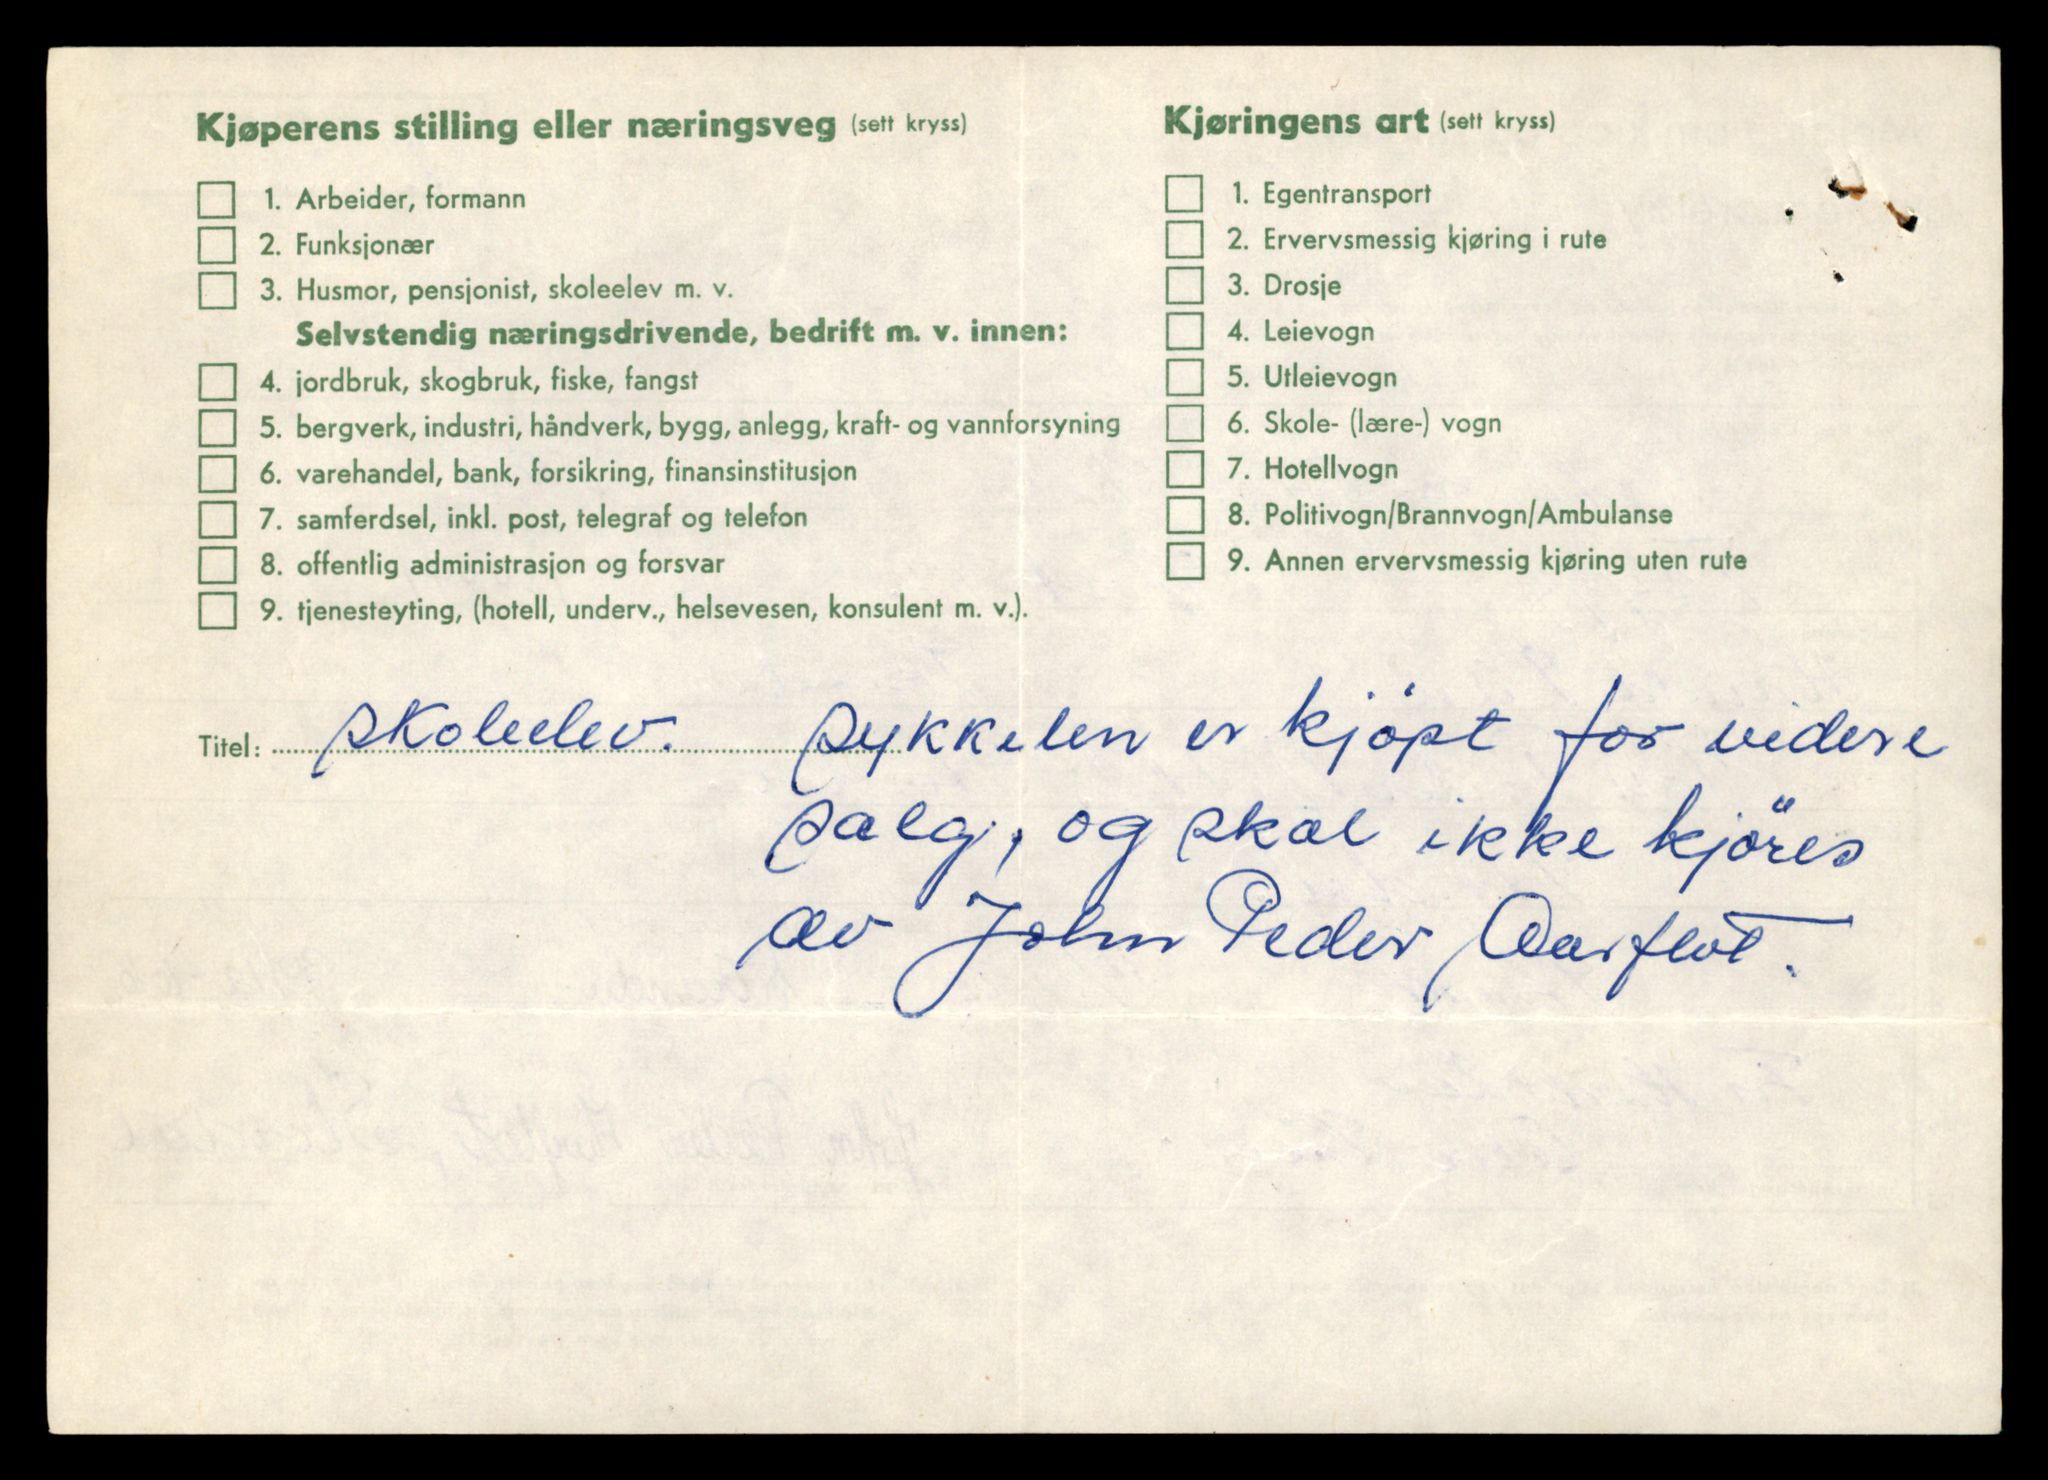 Kjøperens stilling eller næringsveg (sett kryss)
1. Arbeider, formann
2. Funksjonær
3. Husmor, pensjonist, skoleelev m. v.
Selvstendig næringsdrivende, bedrift m. v. innen:
4. jordbruk, skogbruk, fiske, fangst
5. bergverk, industri, håndverk, bygg, anlegg, kraft- og vannforsyning
6. varehandel, bank, forsikring, finansinstitusjon
7. samferdsel, inkl. post, telegraf og telefon
8. offentlig administrasjon og forsvar
9. tjenesteyting, (hotell, underv., helsevesen, konsulent m. v.).
Kjøringens art (sett kryss)
1. Egentransport
2. Ervervsmessig kjøring i rute
3. Drosje
4. Leievogn
5. Utleievogn
6. Skole- (lære-) vogn
7. Hotellvogn
8. Politivogn/Brannvogn/Ambulanse
9. Annen ervervsmessig kjøring uten rute
Titel: skoleelev. sykkelen er kjöpt for videre
salg, og skal ikke kjöres
av John Peder Aarflot.